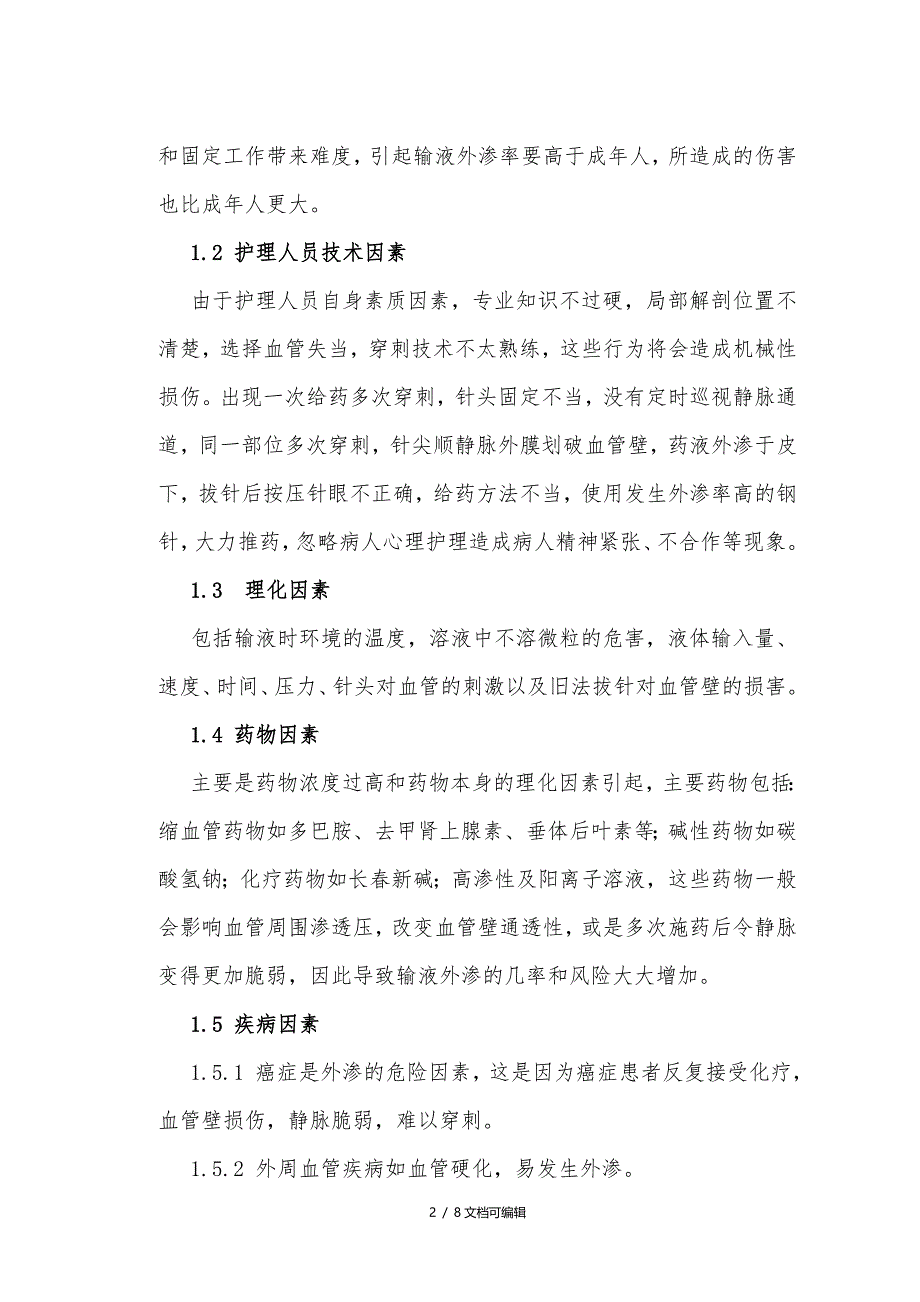 和固定工作带来难度，引起输液外渗率要高于成年人，所造成的伤害
也比成年人更大。
1.2 护理人员技术因素
由于护理人员自身素质因素，专业知识不过硬，局部解剖位置不
清楚，选择血管失当，穿刺技术不太熟练，这些行为将会造成机械性
损伤。出现一次给药多次穿刺，针头固定不当，没有定时巡视静脉通
道，同一部位多次穿刺，针尖顺静脉外膜划破血管壁，药液外渗于皮
下，拔针后按压针眼不正确，给药方法不当，使用发生外渗率高的钢
针，大力推药，忽略病人心理护理造成病人精神紧张、不合作等现象。
1.3 理化因素
包括输液时环境的温度，溶液中不溶微粒的危害，液体输入量、
速度、时间、压力、针头对血管的刺激以及旧法拔针对血管壁的损害。
1.4 药物因素
主要是药物浓度过高和药物本身的理化因素引起，主要药物包括：
缩血管药物如多巴胺、去甲肾上腺素、垂体后叶素等；碱性药物如碳
酸氢钠；化疗药物如长春新碱；高渗性及阳离子溶液，这些药物一般
会影响血管周围渗透压，改变血管壁通透性，或是多次施药后令静脉
变得更加脆弱，因此导致输液外渗的几率和风险大大增加。
1.5 疾病因素
1.5.1 癌症是外渗的危险因素，这是因为癌症患者反复接受化疗，
血管壁损伤，静脉脆弱，难以穿刺。
1.5.2 外周血管疾病如血管硬化，易发生外渗。
2 / 8文档可编辑